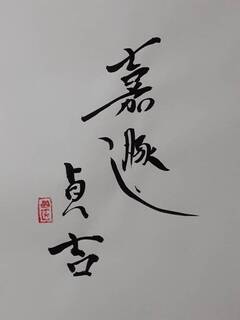 嘉遯
貞吉